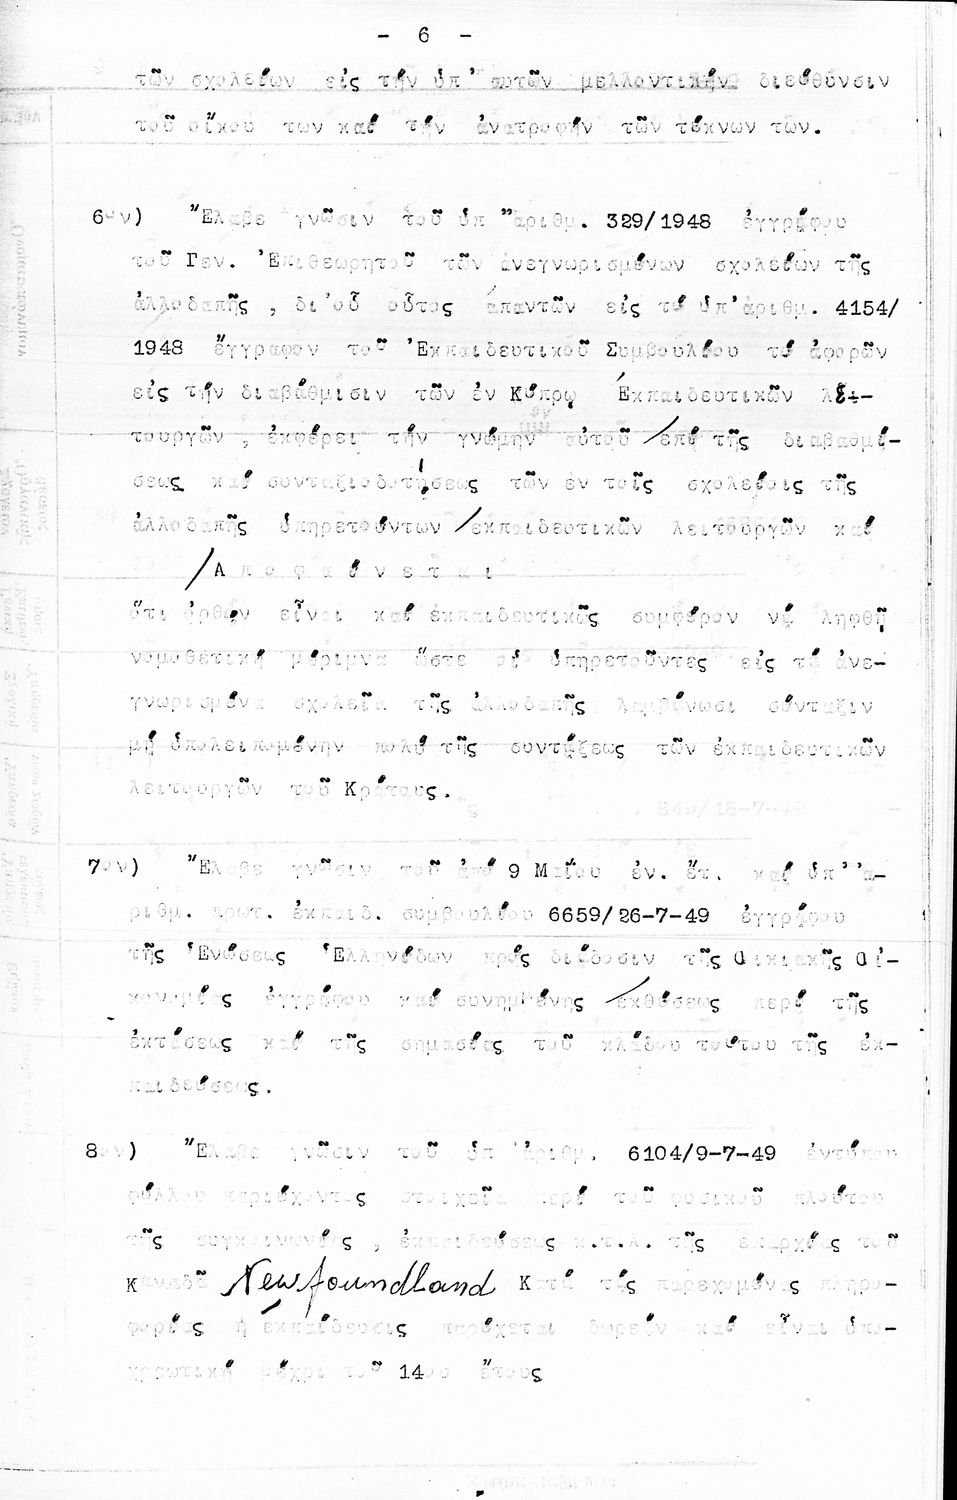 - 6 -
τῶν σχολείων εἰς τήν ὑπ' αυτῶν μελλοντικήν διεύθυνσιν
τοῦ οἴκου των καί τήν ἀνατροφήν τῶν τέκνων των.
6ον) "Ελαβε γνῶσιν τοῦ ὑπ "ἀριθμ. 329/1948 ἐγγράφου
τοῦ Γεν. 'Επιθεωρητοῦ τῶν ἀνεγνωρισμένων σχολείων τῆς
ἀλλοδαπῆς , δι'οὗ οὗτος ἀπαντῶν εἰς τό ὑπ'ἀριθμ. 4154/
1948 ἔγγραφον τοῦ 'Εκπαιδευτικοῦ Συμβουλίου τό ἀφορῶν
εἰς τήν διαβάθμισιν τῶν ἐν Κύπρῳ Εκπαιδευτικῶν λει-
τουργῶν , ἐκφέρει τήν γνώμην αὐτοῦ ἐπί τῆς διαβαθμί-
σεως καί συνταξιοδοτήσεως τῶν ἐν τοῖς σχολείοις τῆς
ἀλλοδαπῆς ὑπηρετούντων ἐκπαιδευτικῶν λειτουργῶν καί
Α π ο φ α ί ν ε τ α ι
ὅτι ὀρθόν εἶναι καί ἐκπαιδευτικῶς συμφέρον νά ληφθῇ
νομοθετική μέριμνα ὥστε οἱ ὑπηρετοῦντες εἰς τά ἀνε-
γνωρισμένα σχολεῖα τῆς ἀλλοδαπῆς λαμβάνωσι σύνταξιν
μή ὑπολειπομένην πολύ τῆς συντάξεως τῶν ἐκπαιδευτικῶν
λειτουργῶν τοῦ Κράτους.
7ον) "Ελαβε γνῶσιν τοῦ ἀπό 9 Μαΐου ἐν. ἔτ. καί ὑπ' 'α-
ριθμ. πρωτ. ἐκπαιδ. συμβουλίου 6659/26-7-49 ἐγγράφου
τῆς 'Ενώσεως 'Ελληνίδων πρός διάδοσιν τῆς Οικιακῆς Οἰ-
κονομίας ἐγγράφου καί συνημμένης ἐκθέσεως περί τῆς
ἐκτάσεως καί τῆς σημασίας τοῦ κλάδου τούτου τῆς ἐκ-
παιδεύσεως.
8ον) "Ελαβε γνῶσιν τοῦ ὑπ 'ἀριθμ. 6104/9-7-49 ἐντύπου
φύλλου περιέχοντος στοιχεῖα περί τοῦ φυσικοῦ πλούτου
τῆς συγκοινωνίας , ἐκπαιδεύσεως κ.τ.λ. τῆς ἐπαρχίας τοῦ
Καναδᾶ Newfoundland Κατά τάς παρεχομένας πληρο-
φορίας ἡ ἐκπαίδευσις παρέχεται δωρεάν καί εἶναι ὑπο-
χρεωτική μέχρι τοῦ 14ου ἔτους